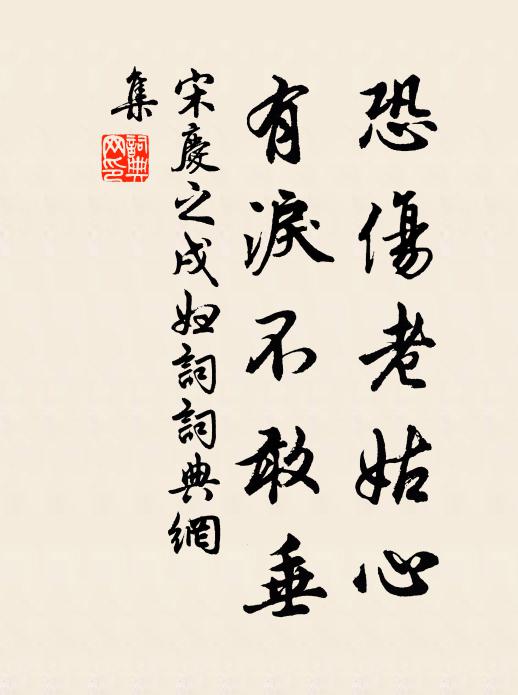 恐傷老姑心
有淚不敢垂
宋慶之戍妇詞詞典網
集
詞典
网印